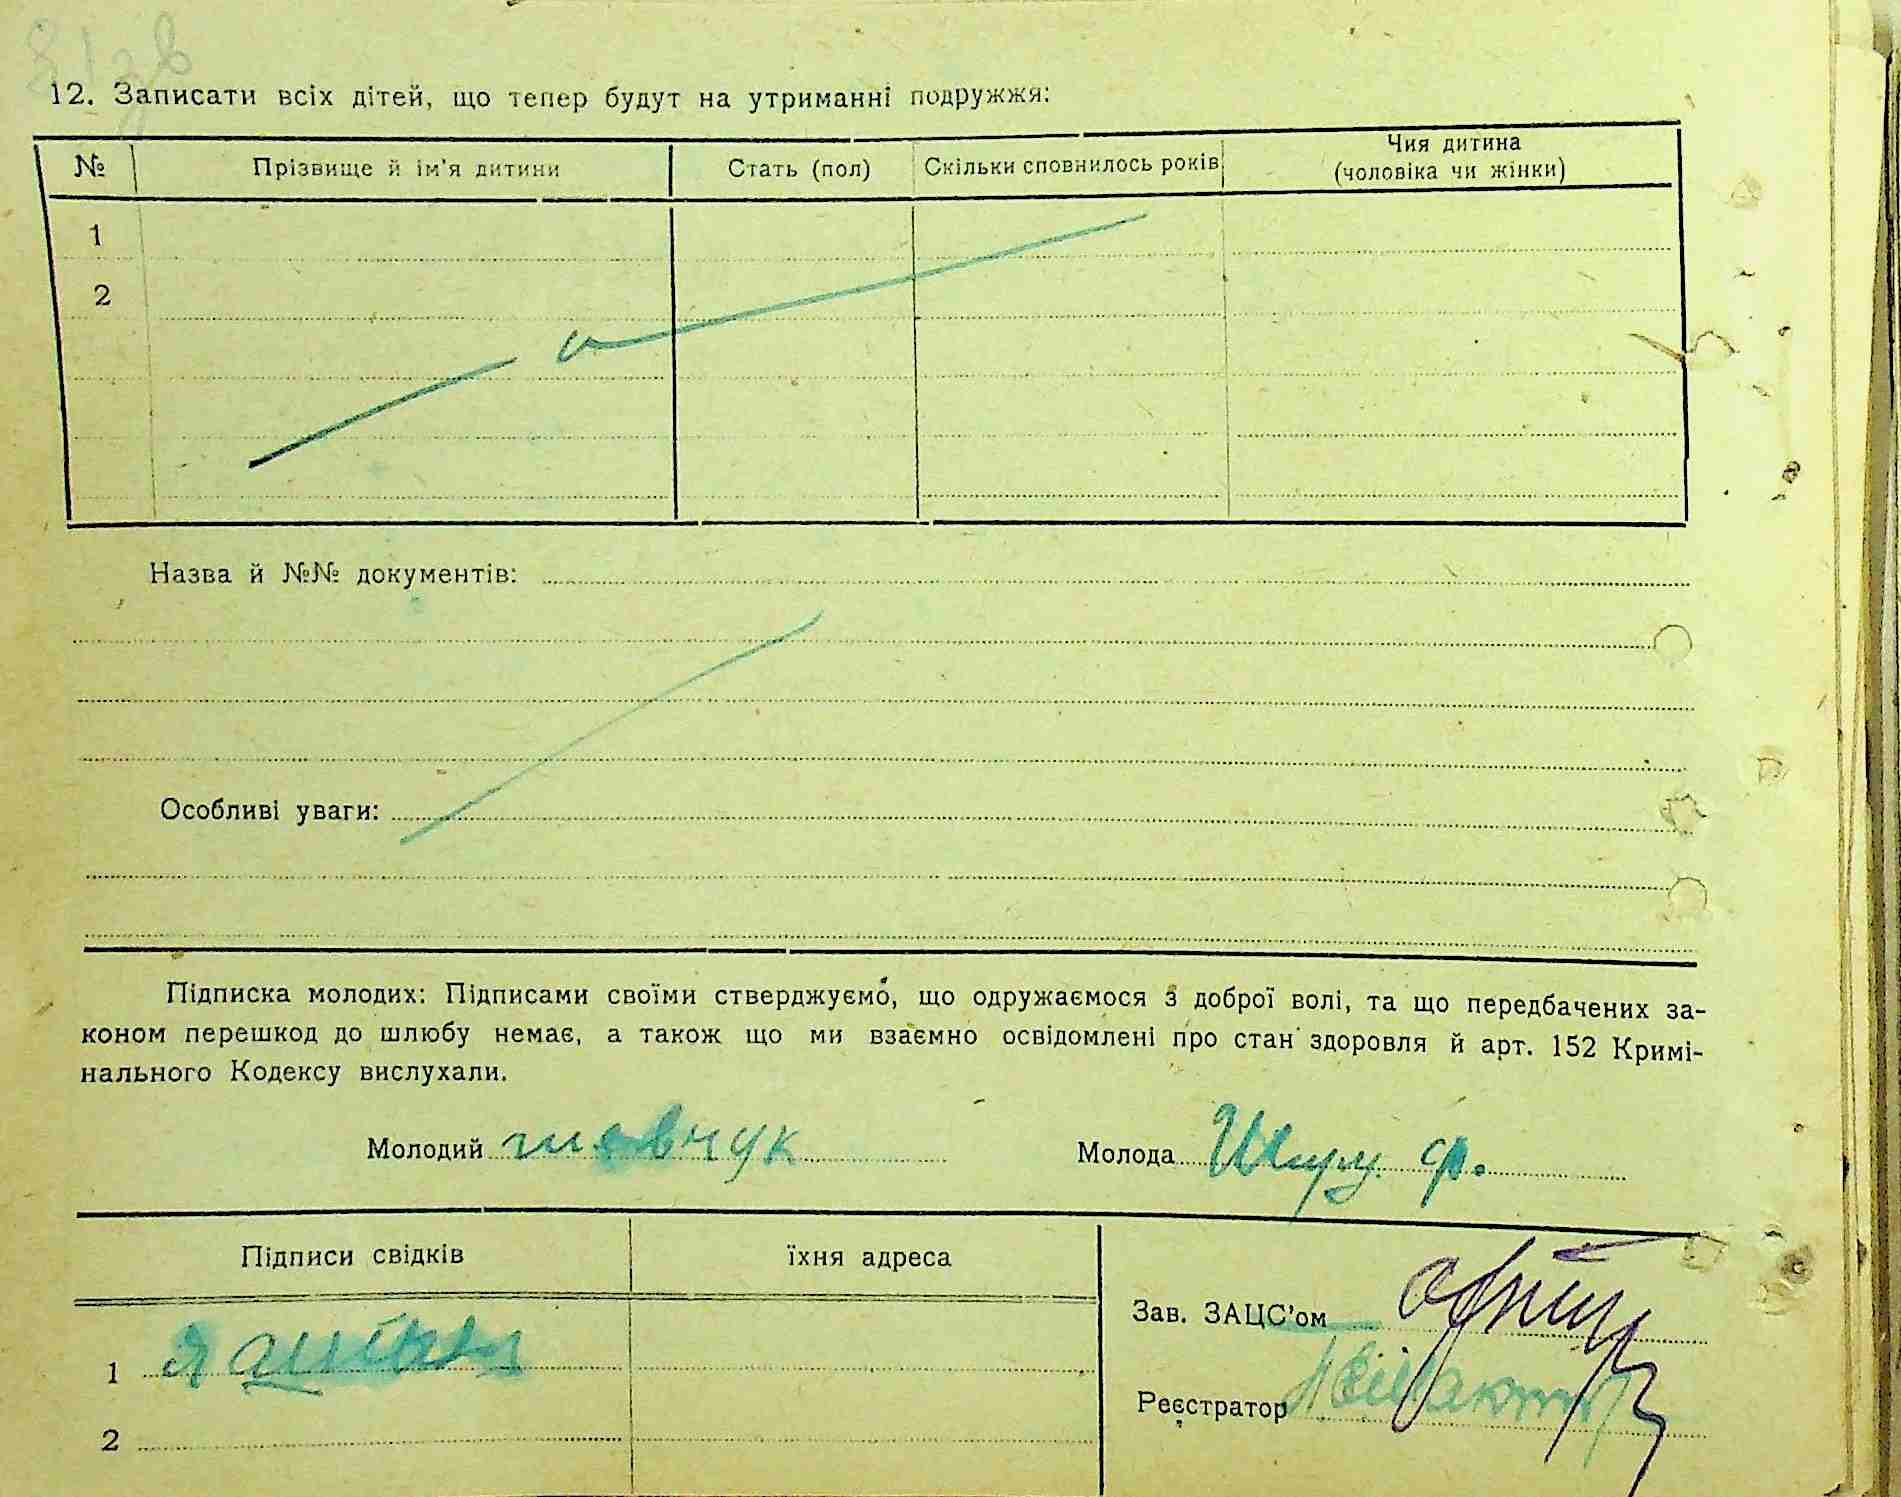 12. Записати всіх дітей, що тепер будут на утриманні подружжя:
№ Прізвище й ім'я дитини Стать (пол) Скільки сповнилось років Чия дитина (чоловіка чи жінки)
1
2
Назва й №№ документів:
Особливі уваги:
Підписка молодих: Підписами своїми стверджуємо, що одружаємося з доброї волі, та що передбачених за-
коном перешкод до шлюбу немає, а також що ми взаємно освідомлені про стан здоровля й арт. 152 Кримі-
нального Кодексу вислухали.
Молодий шевчук Молода
Підписи свідків їхня адреса
Зав. ЗАЦС'ом
1
Реєстратор
2